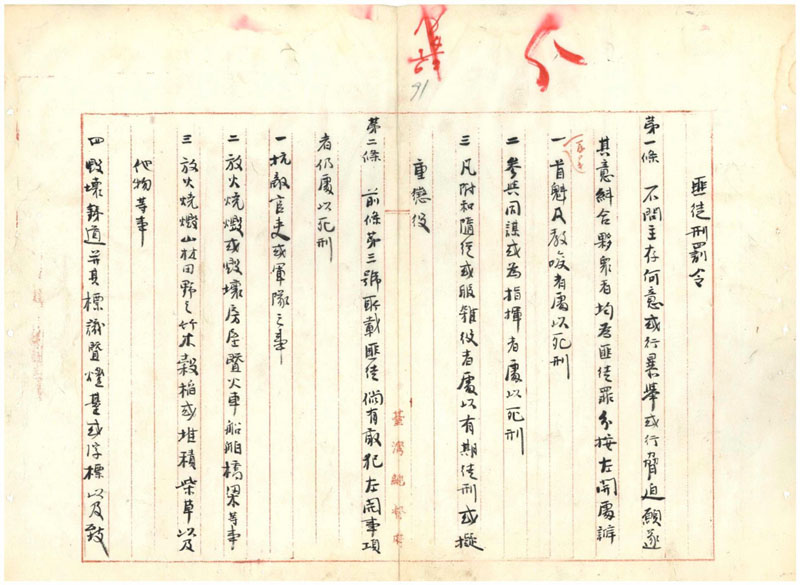 匪徒刑罰令
第一條 不問主存何意或行暴舉或行脅迫願遂
其意糾合夥眾者均為匪徒罪分按左開處辦
一 首魁及教唆者處以死刑
二 參與同謀或為指揮者處以死刑
三 凡附和隨從或服雜役者處以有期徒刑或擬
重懲役
第二條 前條第三號所載匪徒倘有敢犯左開事項
者仍處以死刑
一 抗敵官吏或軍隊之事
二 放火燒燬或毀壞房屋暨火車船舶橋梁等事
三 放火燒燬山林田野之竹木穀稻或堆積柴草以及
他物等事
四 毀壞鉄道并其標識暨燈臺或浮標以及致
臺灣總督府
91